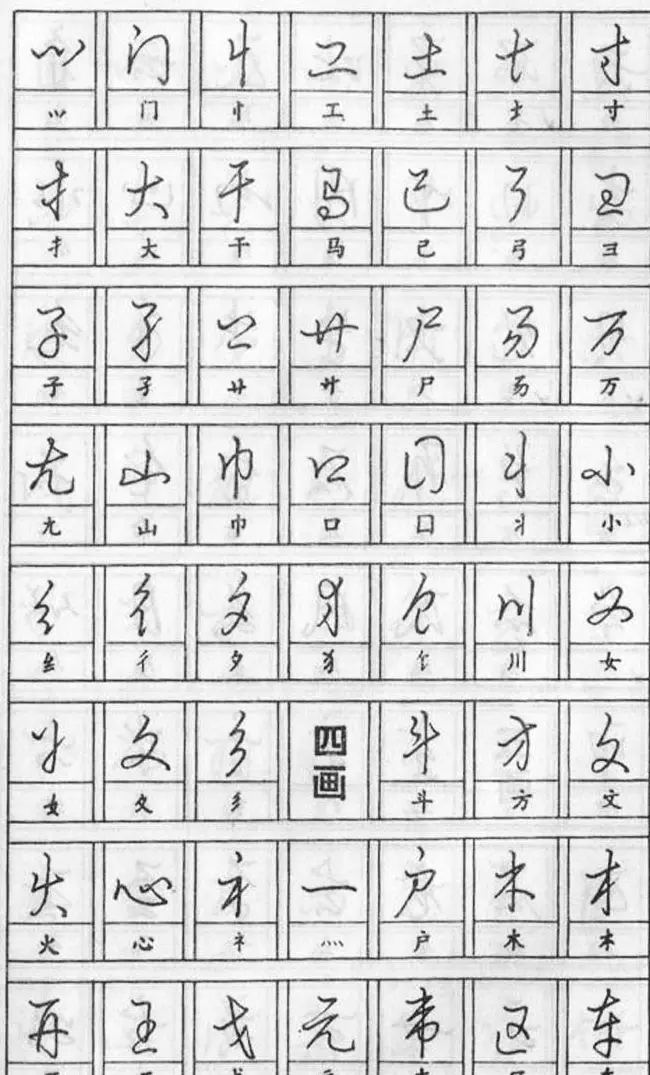 ⺍ 门 忄 工 土 土 寸
⺍ 门 忄 工 土 土 寸
扌 大 干 马 己 弓 彐
扌 大 干 马 己 弓 彐
子 孑 艹 廾 尸 𠃓 万
子 孑 艹 廾 尸 𠃓 万
尢 山 巾 口 囗 丬 小
尢 山 巾 口 囗 丬 小
纟 彳 夕 犭 饣 川 女
纟 彳 夕 犭 饣 川 女
女 夂 彡 四画 斗 方 文
女 夂 彡 斗 方 文
火 心 礻 灬 户 木 木
火 心 礻 灬 户 木 木
王 戈 元 韦 车